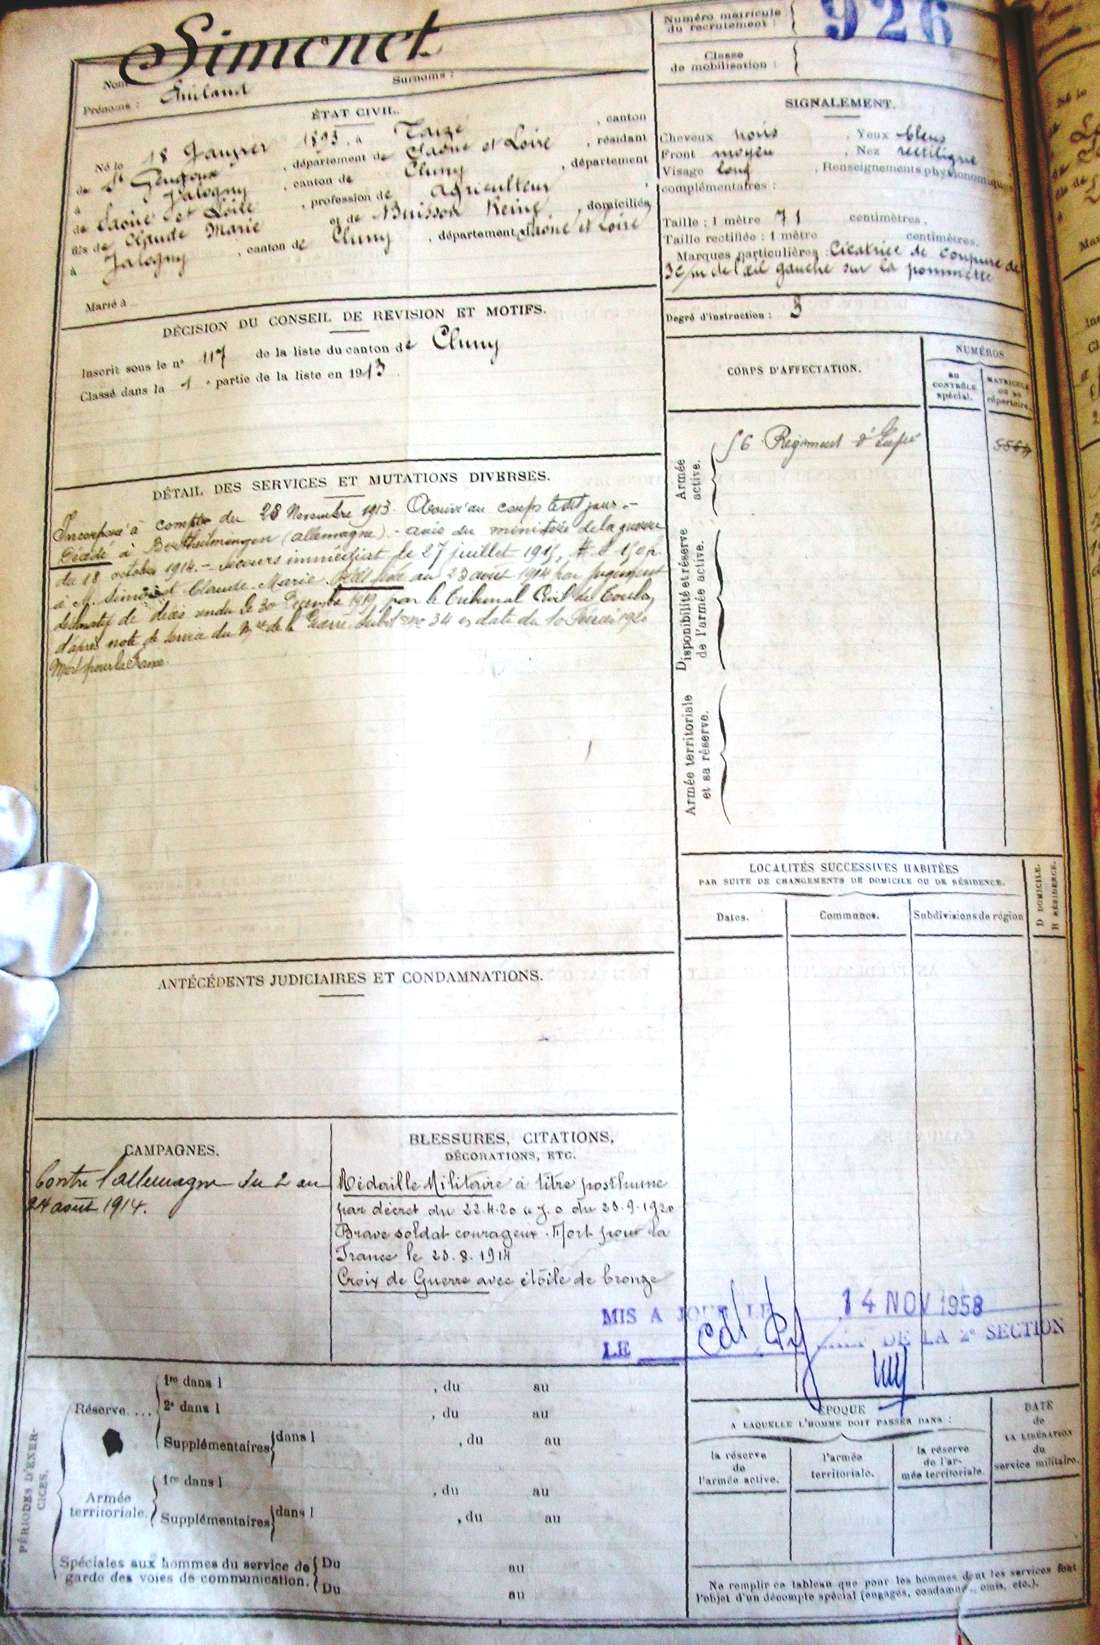 Simonet
Nom
Prénoms :
Surnoms :
Numéro matricule
du recrutement :
926
Classe
de mobilisation :
ÉTAT CIVIL.
Né le 18 Janvier 1893, à Taizé, canton
de St Gengoux, département de Saône et Loire, résidant
à Jalogny, canton de Cluny, département
de Saône et Loire, profession de agriculteur
fils de Claude Marie et de Buisson Reine, domiciliés
à Jalogny, canton de Cluny, département Saône et Loire
Marié à
SIGNALEMENT.
Cheveux noirs, Yeux bleus
Front moyen, Nez rectiligne
Visage long, Renseignements physionomiques
complémentaires :
Taille : 1 mètre 71 centimètres.
Taille rectifiée : 1 mètre centimètres.
Marques particulières : Cicatrice de coupure de
3c/m de l'œil gauche sur la pommette
Degré d'instruction : 3
DÉCISION DU CONSEIL DE REVISION ET MOTIFS.
Inscrit sous le n° 117 de la liste du canton de Cluny
Classé dans la 1 partie de la liste en 1913
DÉTAIL DES SERVICES ET MUTATIONS DIVERSES.
Incorporé à compter du 28 Novembre 1913. Arrivé au corps le dit jour.-
Décédé à (allemagne).- avis du ministère de la guerre
du 18 octobre 1914.- Secours immédiat le 27 juillet 1915,
à M. Simonet Claude Marie. au 23 août 1914 par jugement
déclaratif de décès rendu le 30 Décembre 1919 par le Tribunal Civil de
d'après note de service du Mre de la Guerre 34 en date du 10 1920
Mort pour la France.
CORPS D'AFFECTATION.
NUMÉROS
AU
CONTRÔLE
spécial.
MATRICULE
OU AU
répertoire.
Armée
active.
56 Régiment d'Infie
5564
Disponibilité et réserve
de l'armée active.
Armée territoriale
et sa réserve.
LOCALITÉS SUCCESSIVES HABITÉES
PAR SUITE DE CHANGEMENTS DE DOMICILE OU DE RÉSIDENCE.
Dates.
Communes.
Subdivisions de région
D DOMICILE.
R RÉSIDENCE.
ANTÉCÉDENTS JUDICIAIRES ET CONDAMNATIONS.
CAMPAGNES.
Contre l'allemagne du 2 au
24 août 1914.
BLESSURES, CITATIONS,
DÉCORATIONS, ETC.
Médaille Militaire à titre posthume
par décret du 22.4.20 J.O du 23.9.1920
Brave soldat courageux. Mort pour la
France le 23.8.1914
Croix de Guerre avec étoile de bronze
MIS A JOUR LE 14 NOV 1958
LE DE LA 2e SECTION
PÉRIODES D'EXER-
CICES.
Réserve....
1re dans l , du au
2e dans l , du au
Supplémentaires dans l , du au
Armée
territoriale.
1re dans l , du au
Supplémentaires dans l , du au
Spéciales aux hommes du service de
garde des voies de communication.
Du au
Du au
ÉPOQUE
A LAQUELLE L'HOMME DOIT PASSER DANS :
la réserve
de
l'armée active.
l'armée
territoriale.
la réserve
de l'ar-
mée territoriale.
DATE
de
LA LIBÉRATION
du
service militaire.
Ne remplir ce tableau que pour les hommes dont les services font
l'objet d'un décompte spécial (engagés, condamnés, omis, etc.).